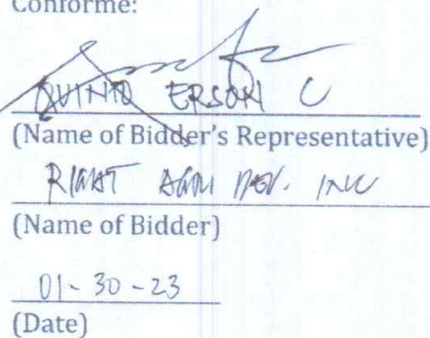 Conforme:
QUINTO ERSON C
(Name of Bidder's Representative)
RIGHT AGRI DEV. INC
(Name of Bidder)
01-30-23
(Date)